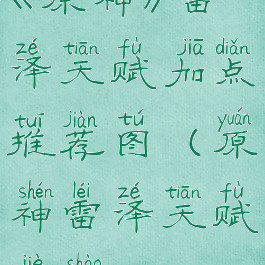 《原神》雷
zé tiān fù jiā diǎn
泽天赋加点
tuī jiàn tú yuán
推荐图（原
shén léi zé tiān fù
神雷泽天赋
jiè shào